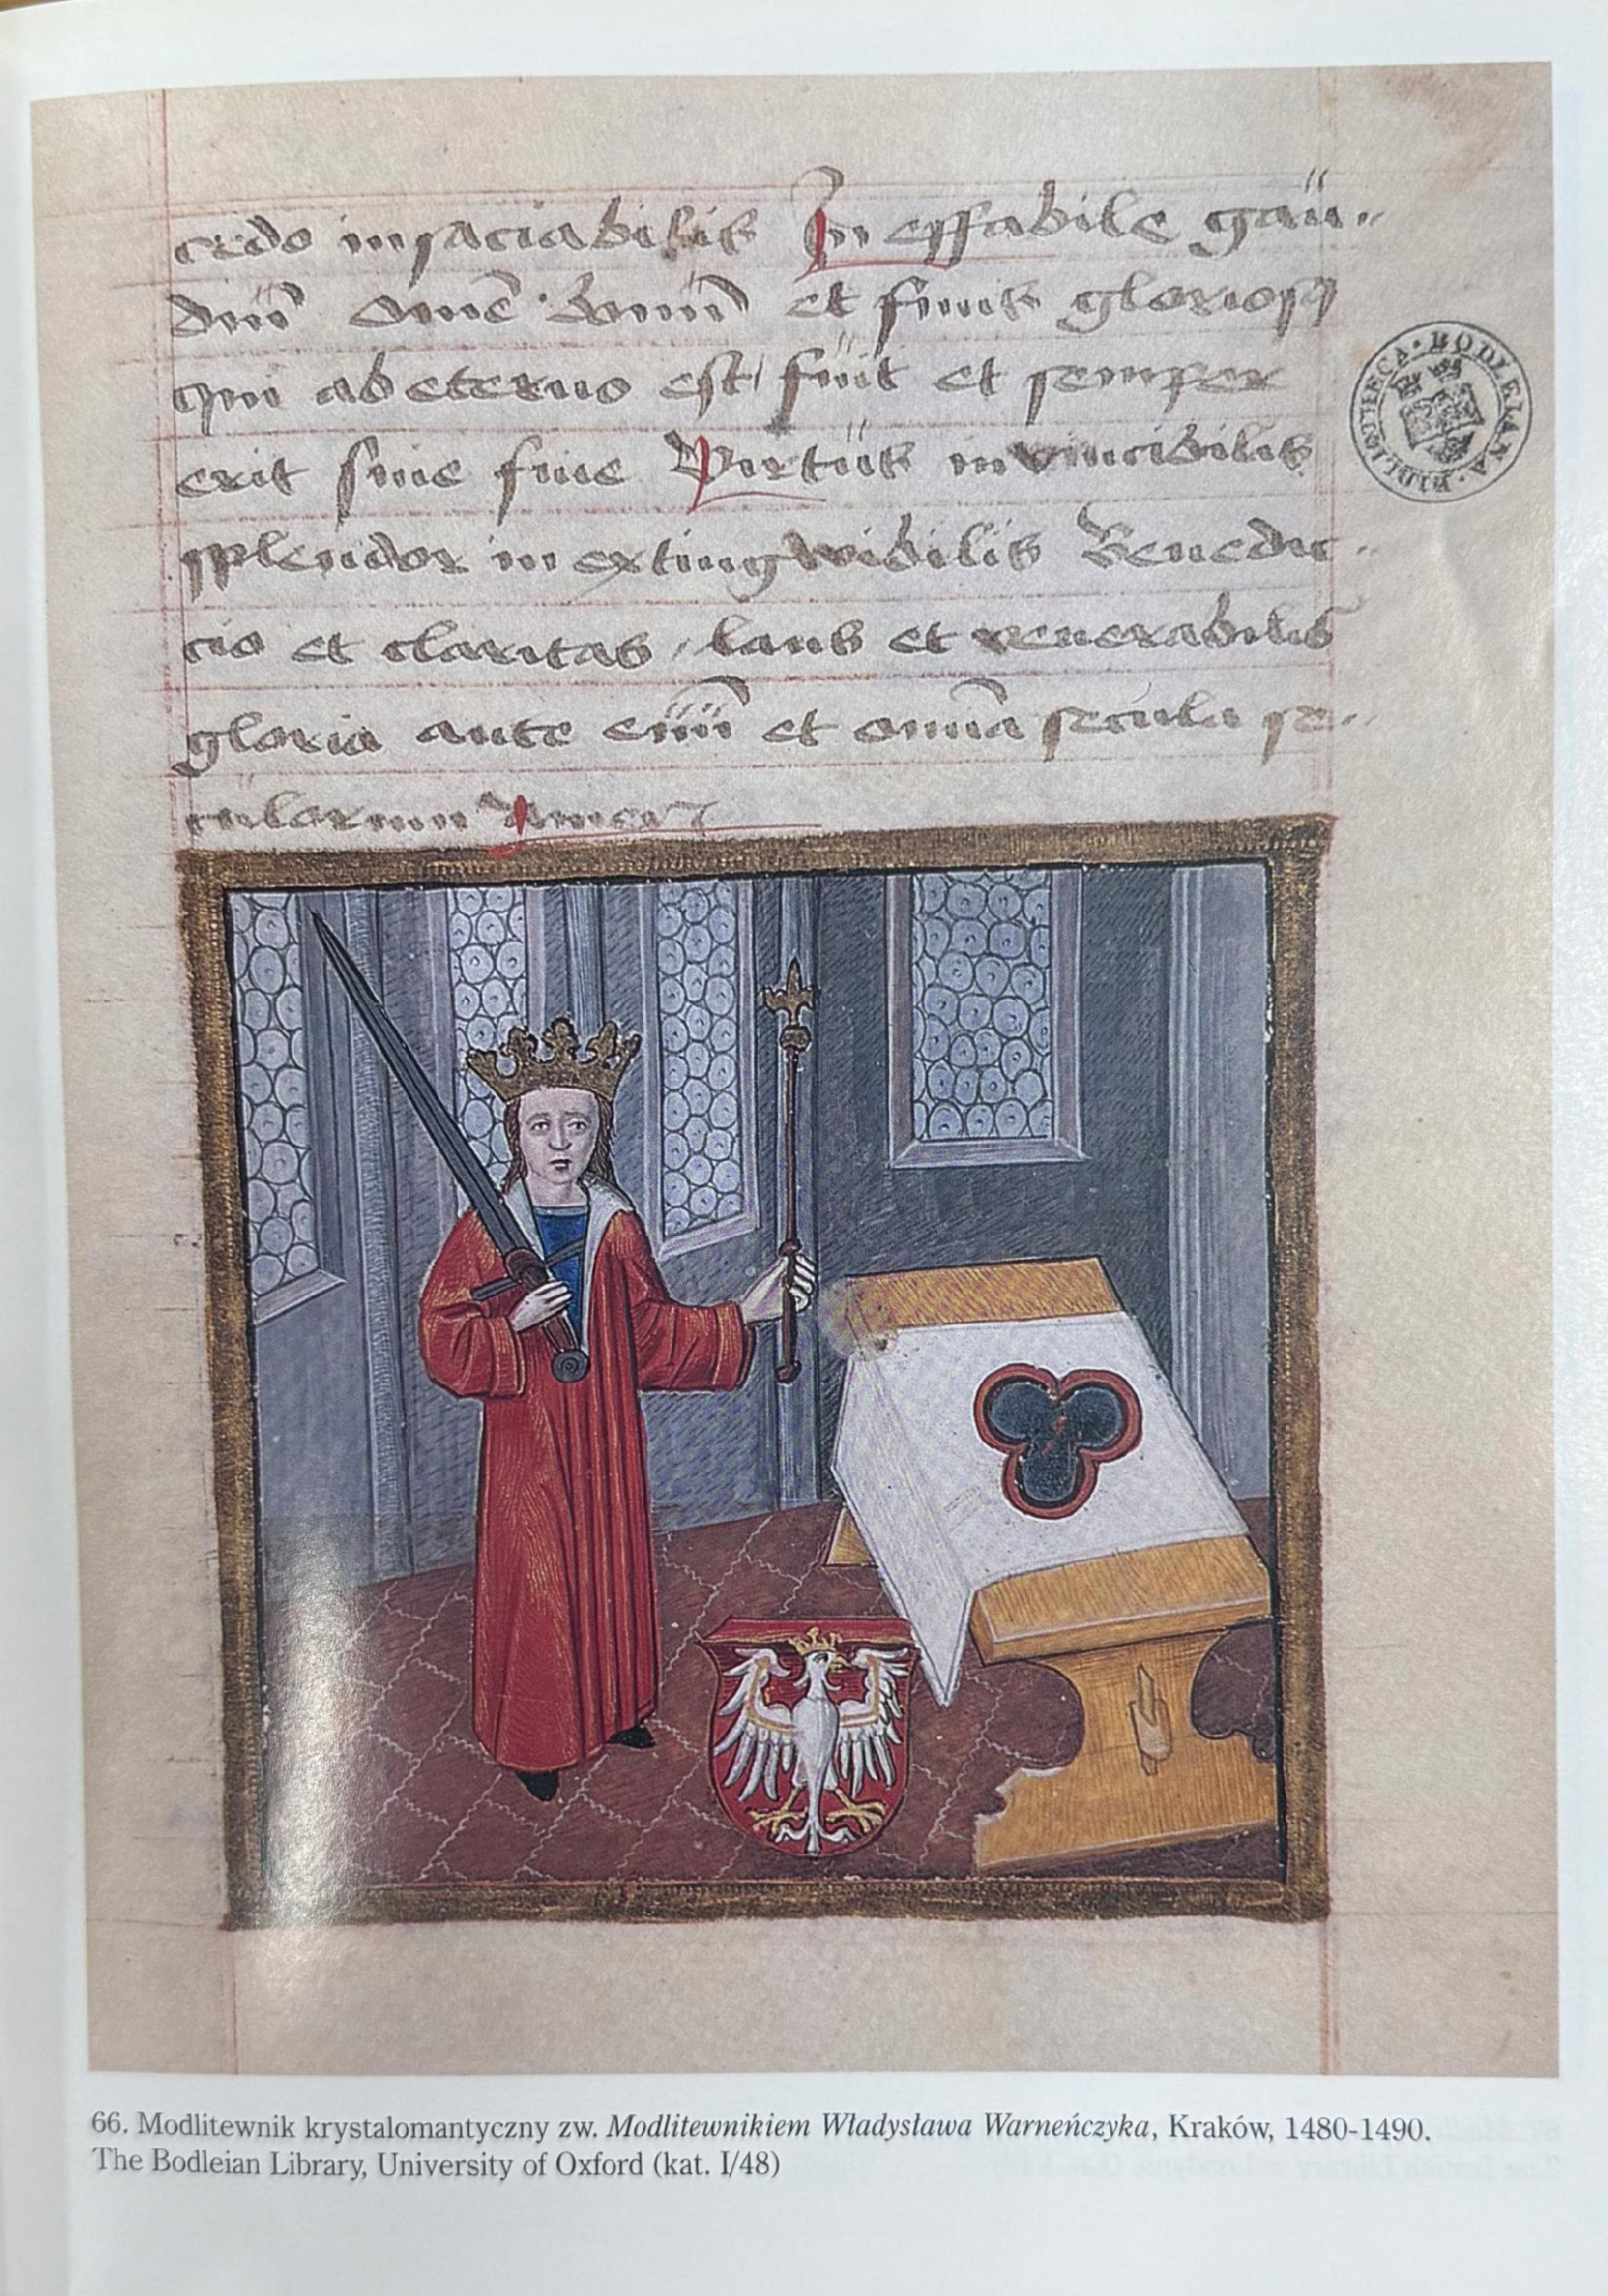 cedo insaciabilis Ineffabile gau..
diū omē bonū et finis glorioſ
qui ab eterno est fuit et semper
erit sine fine Virtus invincibilis
splendor inextingwibilis Benedic..
cio et claritas laus et venerabilis
gloria ante eūū et omīa secula se..
culorum Amen
BIBLIOTHECA · BODLEIANA ·
66. Modlitewnik krystalomantyczny zw. Modlitewnikiem Władysława Warneńczyka, Kraków, 1480-1490.
The Bodleian Library, University of Oxford (kat. I/48)